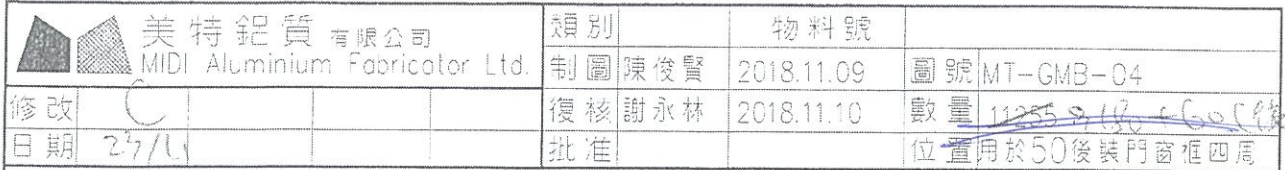 美特鋁質有限公司
MIDI Aluminium Fabricator Ltd.
類別 物料號
制圖 陳俊賢 2018.11.09 圖號 MT-GMB-04
修改 C 復核 謝永林 2018.11.10 數量 11255
日期 批准 位置 用於50後裝門窗框四周